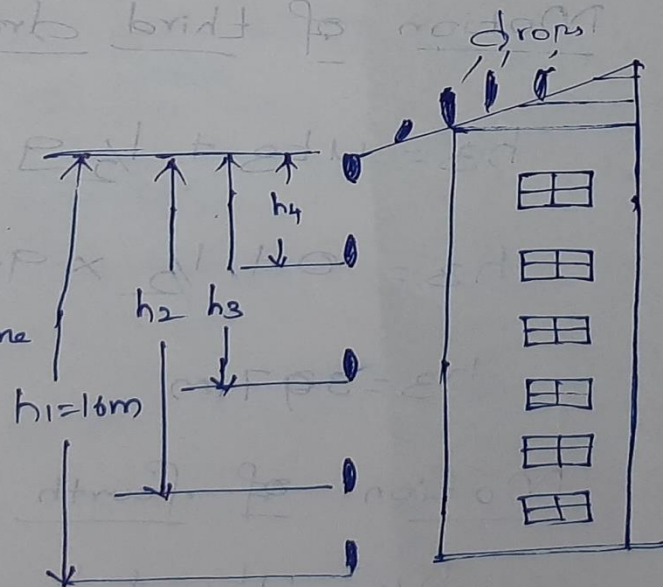 drops
h4
h2 h3
ne
h1=16m